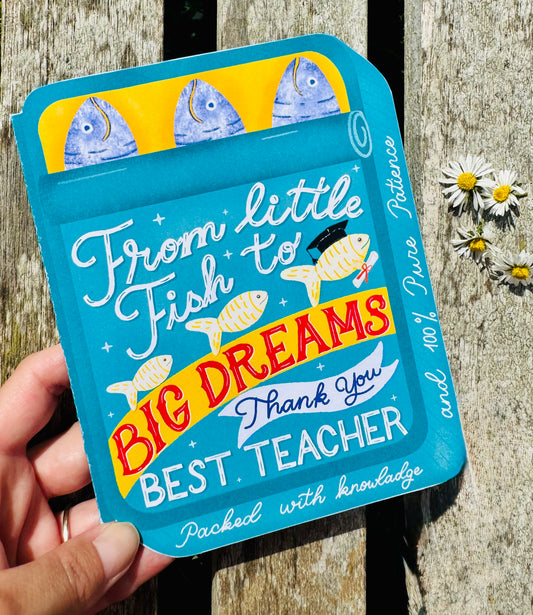 From little
Fish to
BIG DREAMS
Thank You
BEST TEACHER
Packed with knowladge
and 100% Pure Patience